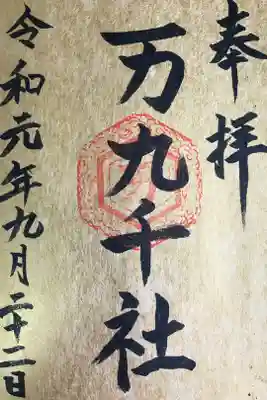 奉拝
万九千社
令和元年九月二十二日